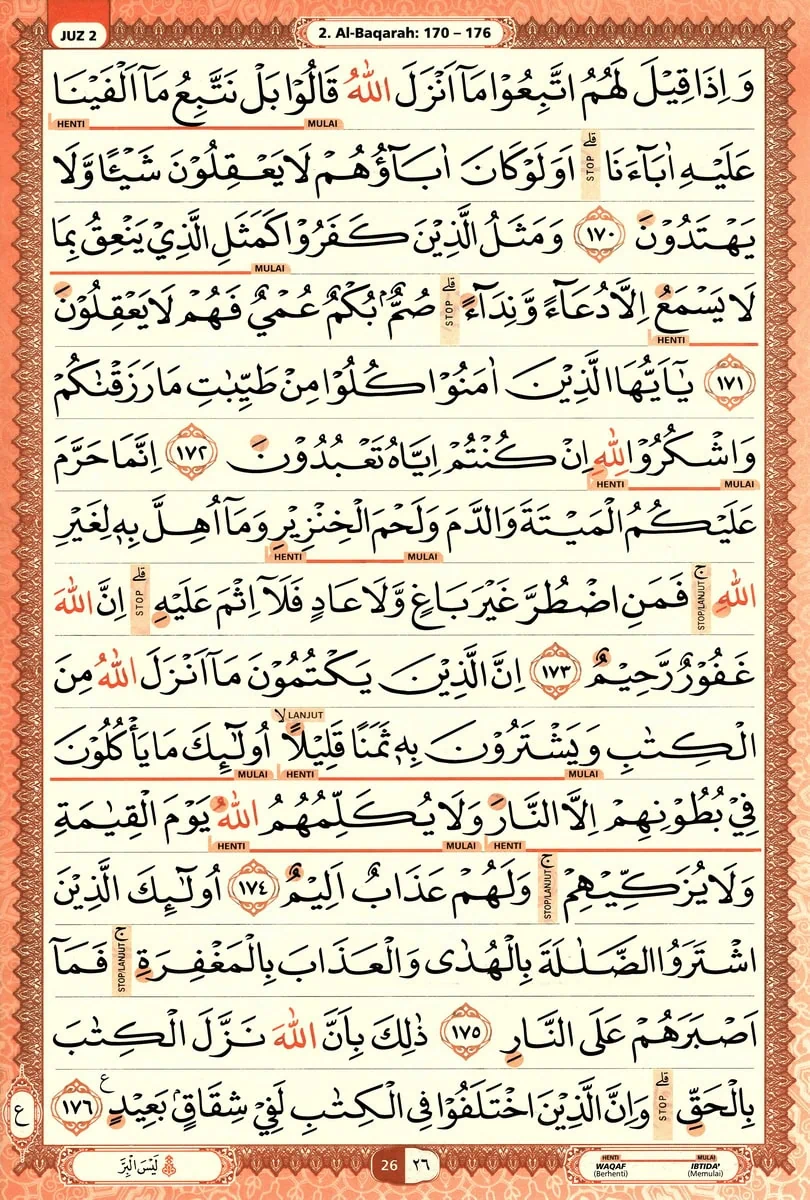 JUZ 2
2. Al-Baqarah: 170 – 176
وَاِذَا قِيْلَ لَهُمُ اتَّبِعُوْا مَآ اَنْزَلَ اللّٰهُ قَالُوْا بَلْ نَتَّبِعُ مَآ اَلْفَيْنَا
HENTI MULAI
عَلَيْهِ اٰبَاۤءَنَا ۗ STOP اَوَلَوْ كَانَ اٰبَاۤؤُهُمْ لَا يَعْقِلُوْنَ شَيْـًٔا وَّلَا
يَهْتَدُوْنَ ١٧٠ وَمَثَلُ الَّذِيْنَ كَفَرُوْا كَمَثَلِ الَّذِيْ يَنْعِقُ بِمَا
MULAI
لَا يَسْمَعُ اِلَّا دُعَاۤءً وَّنِدَاۤءً ۗ STOP صُمٌّ ۢ بُكْمٌ عُمْيٌ فَهُمْ لَا يَعْقِلُوْنَ
HENTI
١٧١ يٰٓاَيُّهَا الَّذِيْنَ اٰمَنُوْا كُلُوْا مِنْ طَيِّبٰتِ مَا رَزَقْنٰكُمْ
وَاشْكُرُوْا لِلّٰهِ اِنْ كُنْتُمْ اِيَّاهُ تَعْبُدُوْنَ ١٧٢ اِنَّمَا حَرَّمَ
HENTI MULAI
عَلَيْكُمُ الْمَيْتَةَ وَالدَّمَ وَلَحْمَ الْخِنْزِيْرِ وَمَآ اُهِلَّ بِهٖ لِغَيْرِ
HENTI MULAI
اللّٰهِ ۚ STOP/LANJUT فَمَنِ اضْطُرَّ غَيْرَ بَاغٍ وَّلَا عَادٍ فَلَآ اِثْمَ عَلَيْهِ ۗ STOP اِنَّ اللّٰهَ
غَفُوْرٌ رَّحِيْمٌ ١٧٣ اِنَّ الَّذِيْنَ يَكْتُمُوْنَ مَآ اَنْزَلَ اللّٰهُ مِنَ
الْكِتٰبِ وَيَشْتَرُوْنَ بِهٖ ثَمَنًا قَلِيْلًاۙ LANJUT اُولٰۤىِٕكَ مَا يَأْكُلُوْنَ
MULAI HENTI MULAI
فِيْ بُطُوْنِهِمْ اِلَّا النَّارَ وَلَا يُكَلِّمُهُمُ اللّٰهُ يَوْمَ الْقِيٰمَةِ
HENTI MULAI HENTI
وَلَا يُزَكِّيْهِمْ ۚ STOP/LANJUT وَلَهُمْ عَذَابٌ اَلِيْمٌ ١٧٤ اُولٰۤىِٕكَ الَّذِيْنَ
اشْتَرَوُا الضَّلٰلَةَ بِالْهُدٰى وَالْعَذَابَ بِالْمَغْفِرَةِ ۚ STOP/LANJUT فَمَآ
اَصْبَرَهُمْ عَلَى النَّارِ ١٧٥ ذٰلِكَ بِاَنَّ اللّٰهَ نَزَّلَ الْكِتٰبَ
بِالْحَقِّ ۗ STOP وَاِنَّ الَّذِيْنَ اخْتَلَفُوْا فِى الْكِتٰبِ لَفِيْ شِقَاقٍ ۢ بَعِيْدٍ ع ١٧٦
ع
لَيْسَ الْبِرَّ
26 ٢٦
HENTI WAQAF (Berhenti)
MULAI IBTIDA' (Memulai)